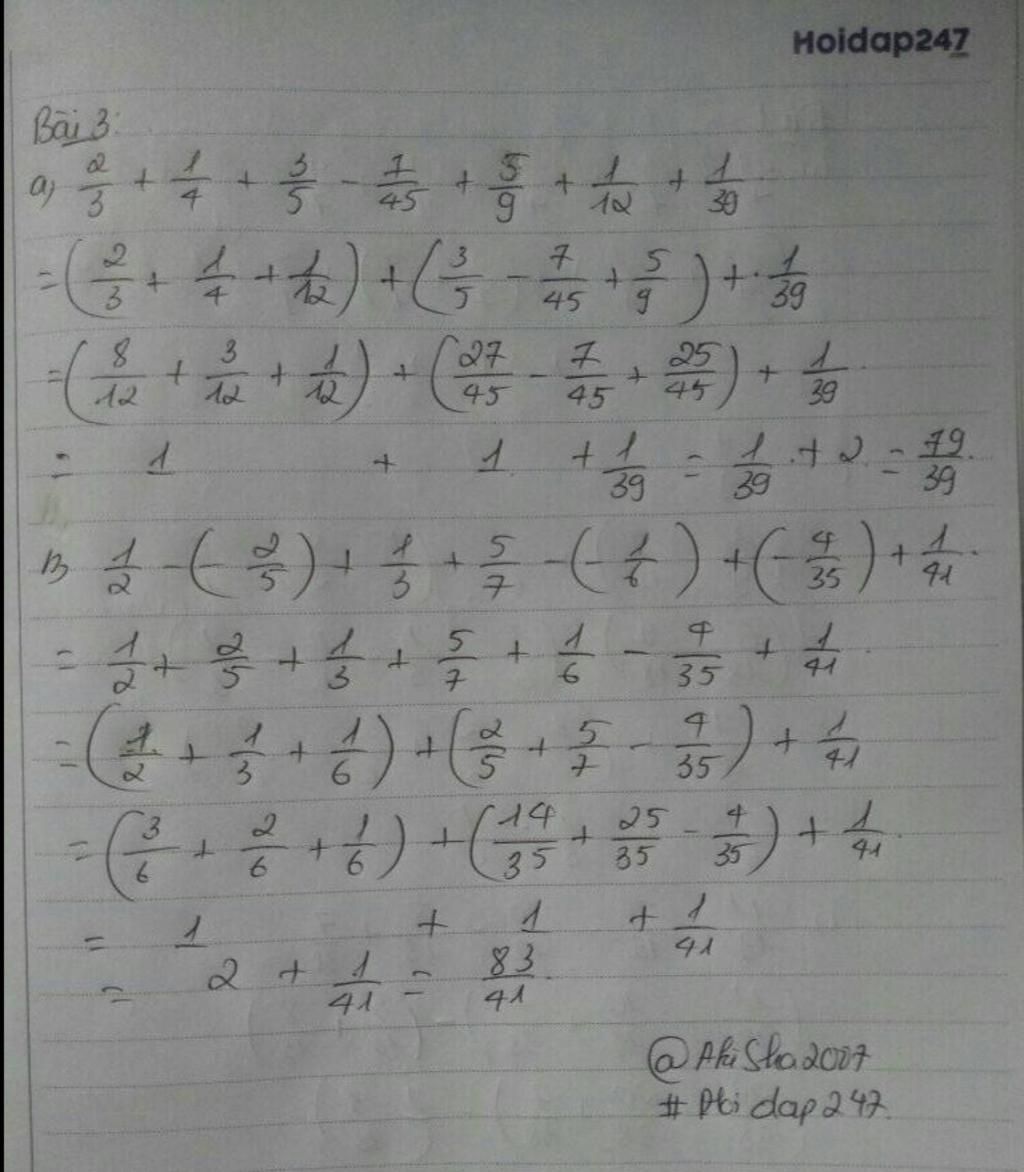 Hoidap247
Bài 3:
a) 2/3 + 1/4 + 3/5 - 7/45 + 5/9 + 1/12 + 1/39
= (2/3 + 1/4 + 1/12) + (3/5 - 7/45 + 5/9) + 1/39
= (8/12 + 3/12 + 1/12) + (27/45 - 7/45 + 25/45) + 1/39
= 1 + 1 + 1/39 = 1/39 + 2 = 79/39.
B) 1/2 - (-2/5) + 1/3 + 5/7 - (-1/6) + (-4/35) + 1/41.
= 1/2 + 2/5 + 1/3 + 5/7 + 1/6 - 4/35 + 1/41.
= (1/2 + 1/3 + 1/6) + (2/5 + 5/7 - 4/35) + 1/41
= (3/6 + 2/6 + 1/6) + (14/35 + 25/35 - 4/35) + 1/41.
= 1 + 1 + 1/41
= 2 + 1/41 = 83/41.
@AkiSha2007
# dap247.